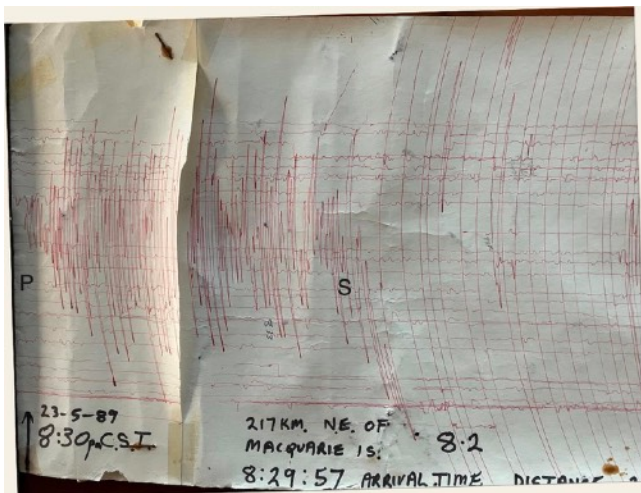 P
S
23-5-89
8:30pm C.S.T.
217KM. N.E. OF
MACQUARIE IS.
8.2
8:29:57 ARRIVAL TIME DISTANCE